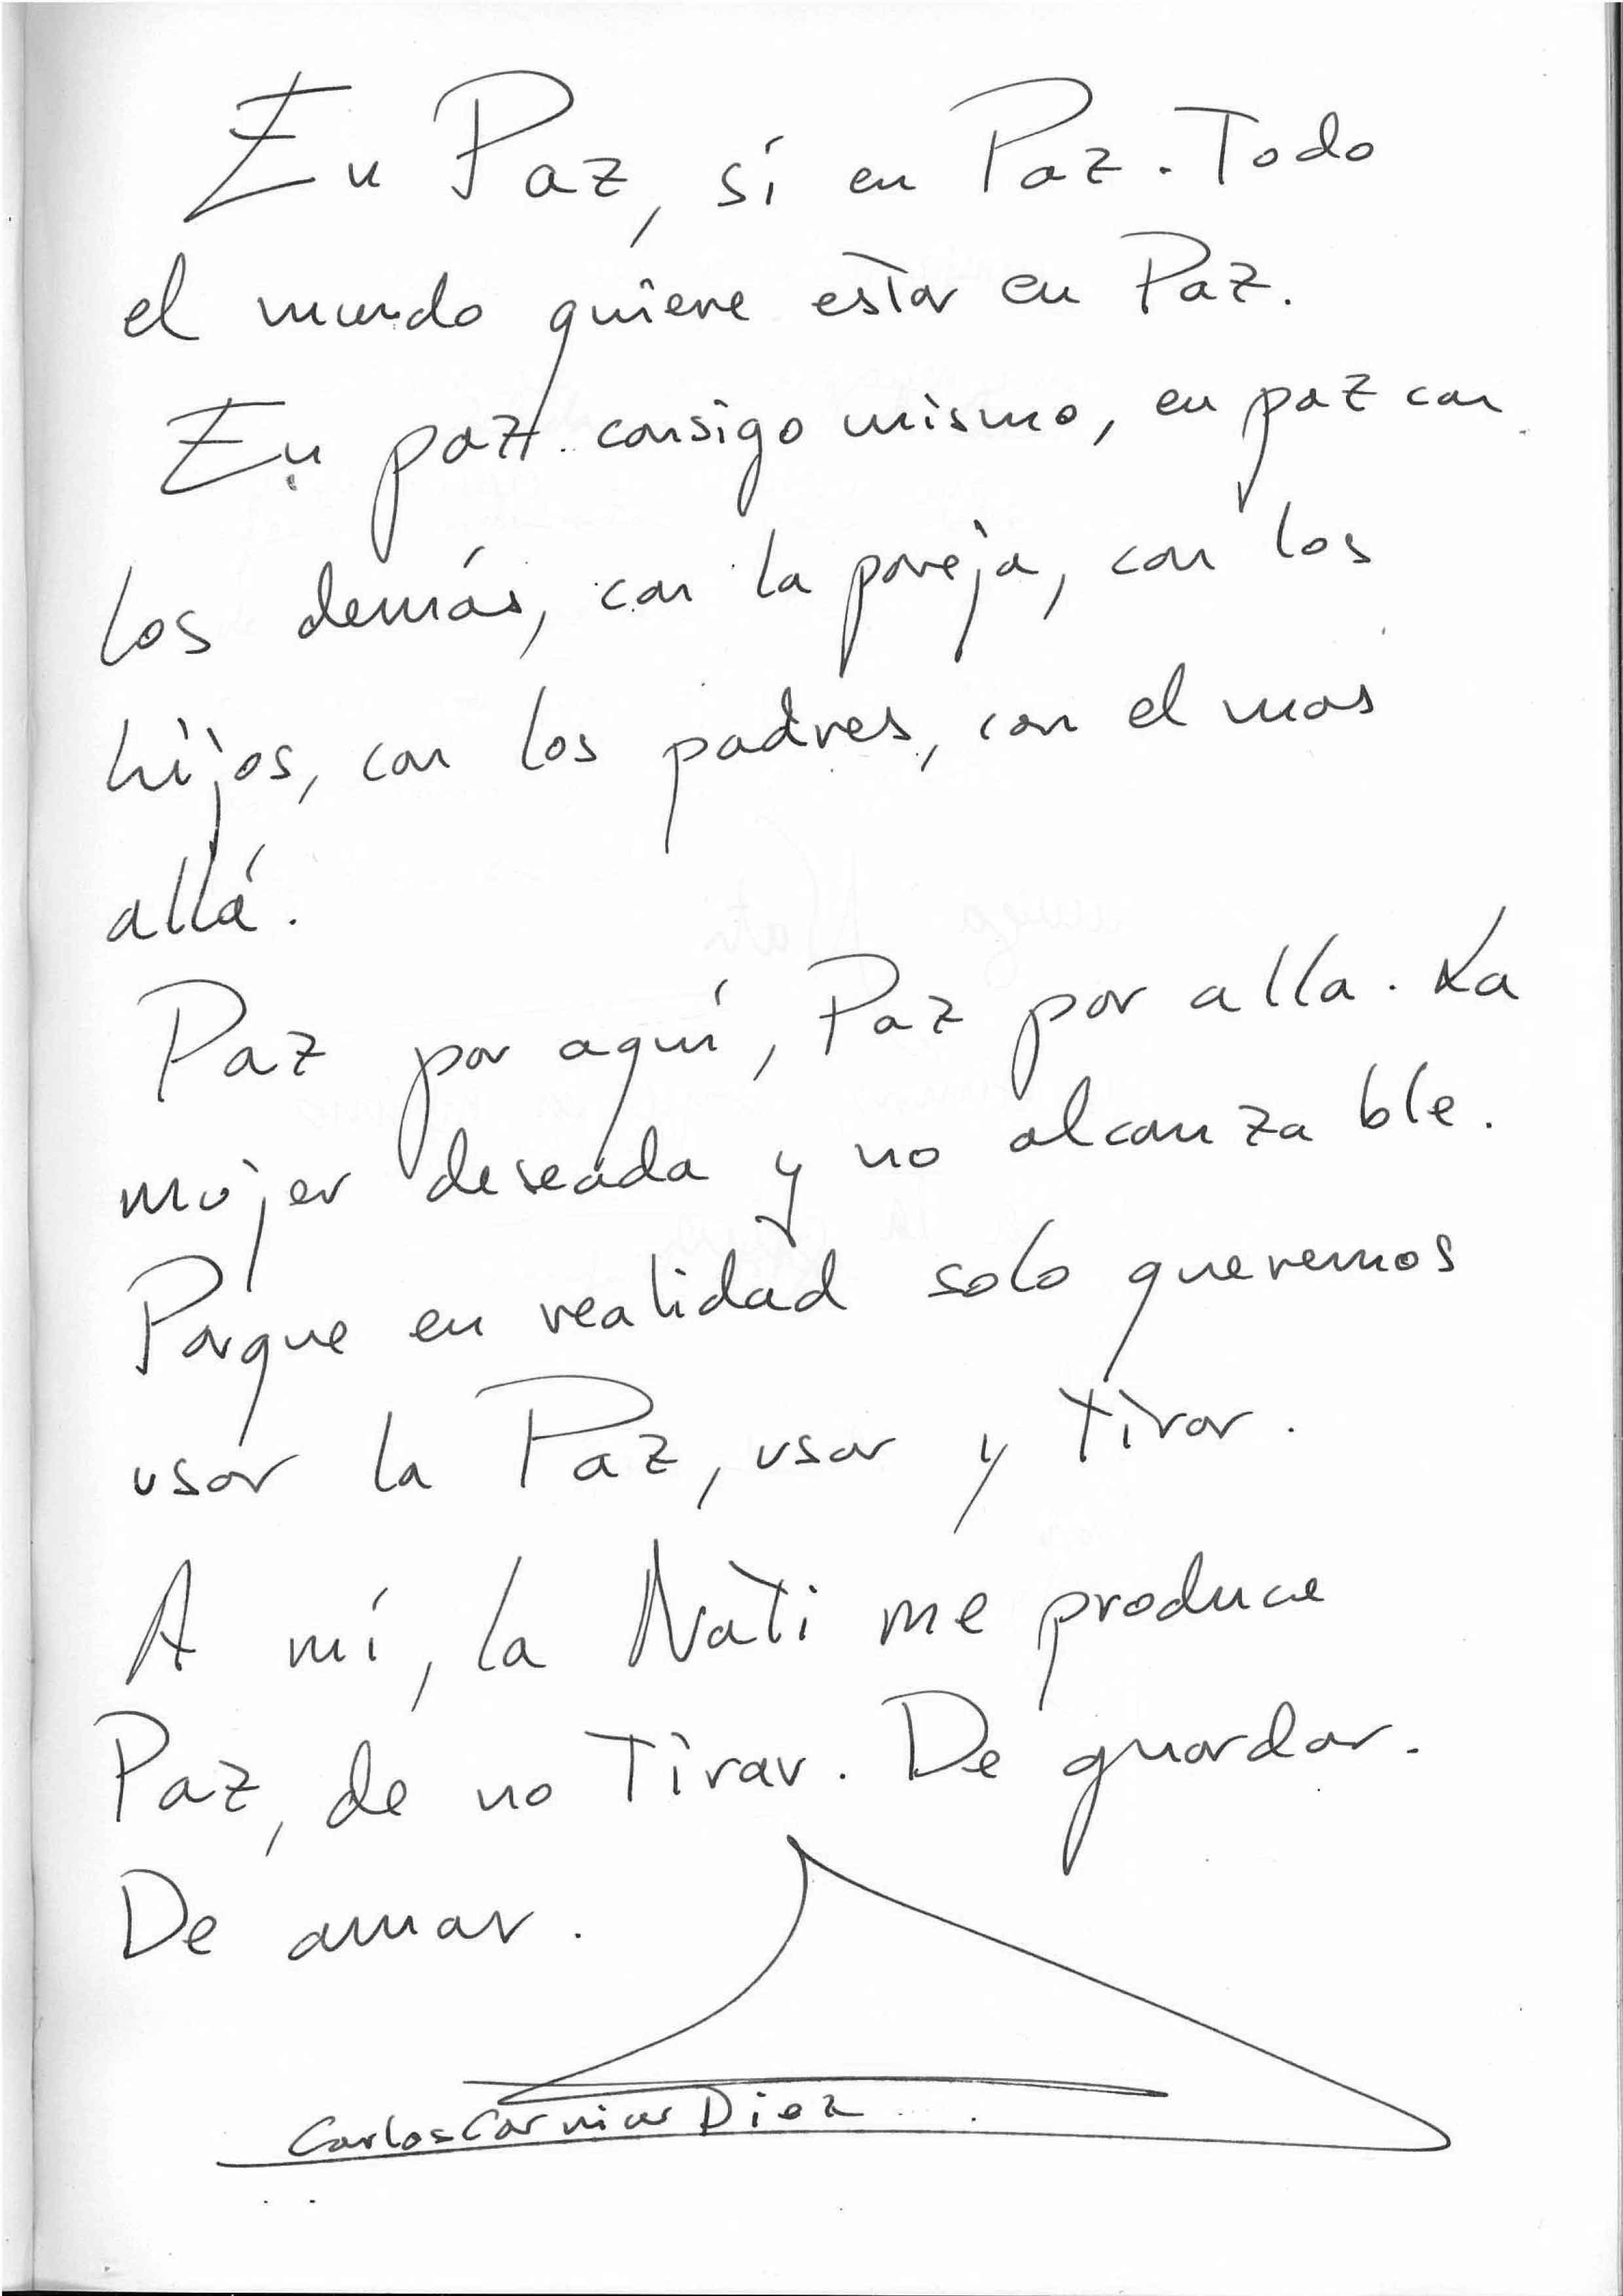 En Paz, sí en Paz. Todo
el mundo quiere estar en Paz.
En paz consigo mismo, en paz con
los demás, con la pareja, con los
hijos, con los padres, con el mas
allá.
Paz por aquí, Paz por alla. La
mujer deseada y no alcanzable.
Porque en realidad solo queremos
usar la Paz, usar y tirar.
A mí, la Nati me produce
Paz, de no Tirar. De guardar.
De amar.
Carlos Diez